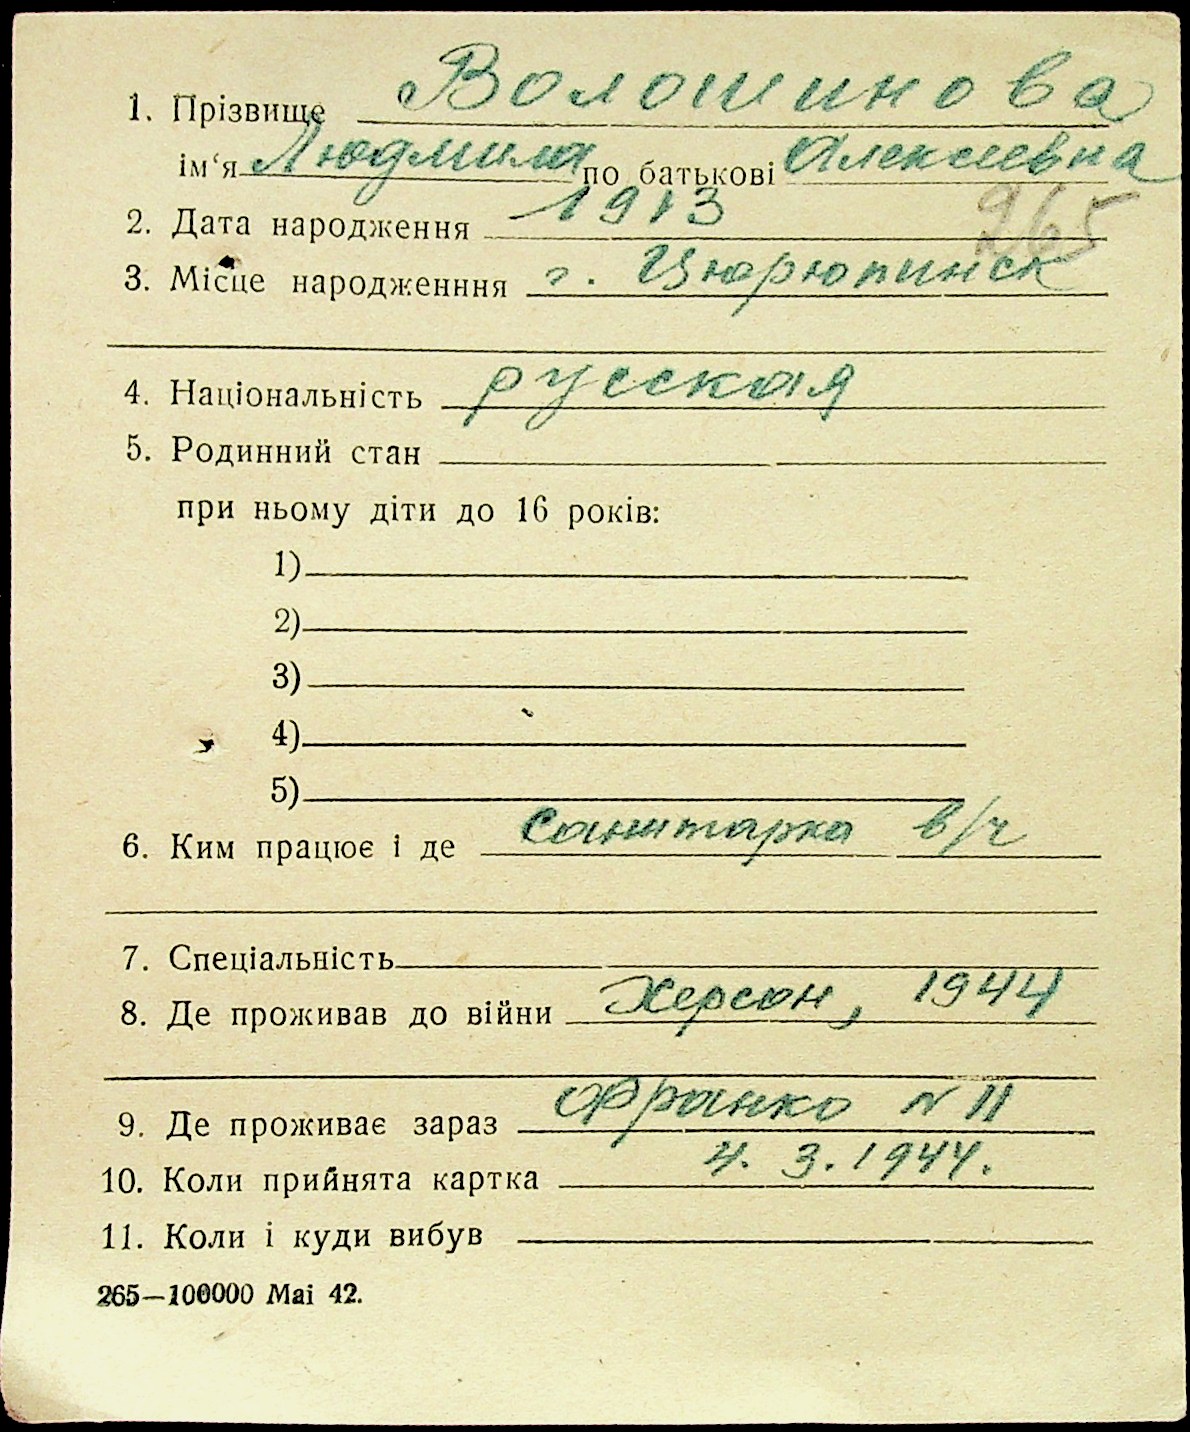 1. Прізвище Волошинова
ім‘я Людмила по батькові Алексеевна
2. Дата народження 1913 265
3. Місце народженння г. Цюрюпинск
4. Національність русская
5. Родинний стан
при ньому діти до 16 років:
1)
2)
3)
4)
5)
6. Ким працює і де санитарка в/ч
7. Спеціальність
8. Де проживав до війни Херсон, 1944
9. Де проживає зараз Франко № 11
10. Коли прийнята картка 4. 3. 1944.
11. Коли і куди вибув
265—100000 Mai 42.